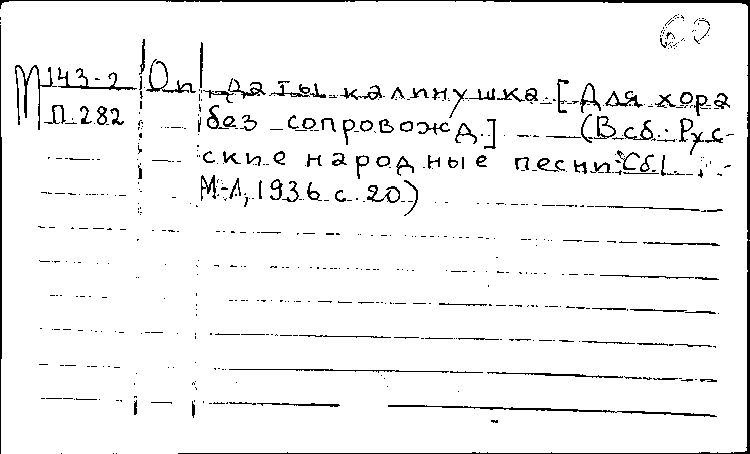 60
М 143-2 Оп Да ты калинушка. [Для хора
П.282 без сопровожд.] (В сб: Рус-
ские народные песни. Сб.1.
М-Л, 1936 с. 20)